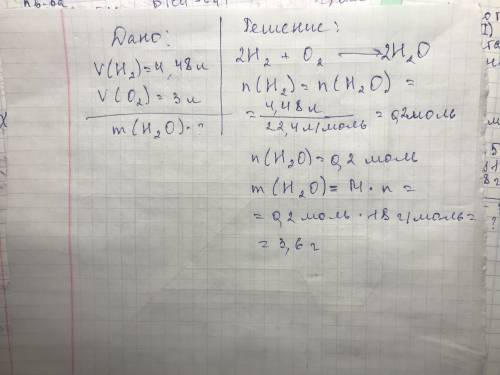 Дано:
V(H₂)=4,48л
V(O₂)=3л
m(H₂O)-?
Решение:
2H₂ + O₂ ⟶ 2H₂O
n(H₂)=n(H₂O)=
= 4,48л / 22,4л/моль = 0,2моль
n(H₂O)=0,2 моль
m(H₂O)= M·n =
= 0,2 моль · 18 г/моль=
= 3,6 г